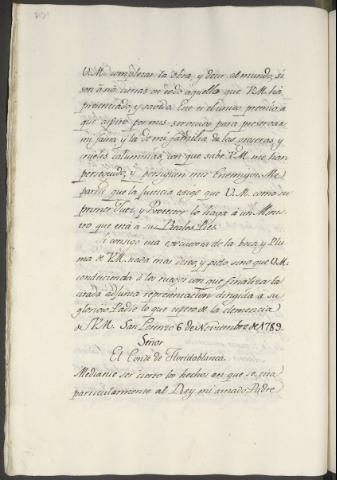 V.M. completar la obra, y decir al mundo, si
son ó no ciertas en todo aquello que V.M. ha
presenciado, y savido. Este es el unico premio, á
que aspiro por mis servicios para preservar
mi fama y la de mi familia de las groseras, y
crueles calumnias, con que sabe V.M. me han
perseguido, y persiguen mis Enemigos. Me
parece que la justicia exige que V.M. como su
primer Juez y Protector lo haga á un Minis-
tro que está á sus Reales Pies.
Si consigo una executoria de la boca, y Plu-
ma de V.M. nada mas deseo, y pido sino que V.M.
condescienda á los ruegos con que finaliza la
citada adjunta representacion dirigida á su
glorioso Padre lo que espero de la clemencia
de V.M. San Lorenzo 6 de Noviembre de 1789.
Señor
El Conde de Floridablanca.
Mediante ser ciertos los hechos en que se cita
particularmente al Rey mi amado Padre